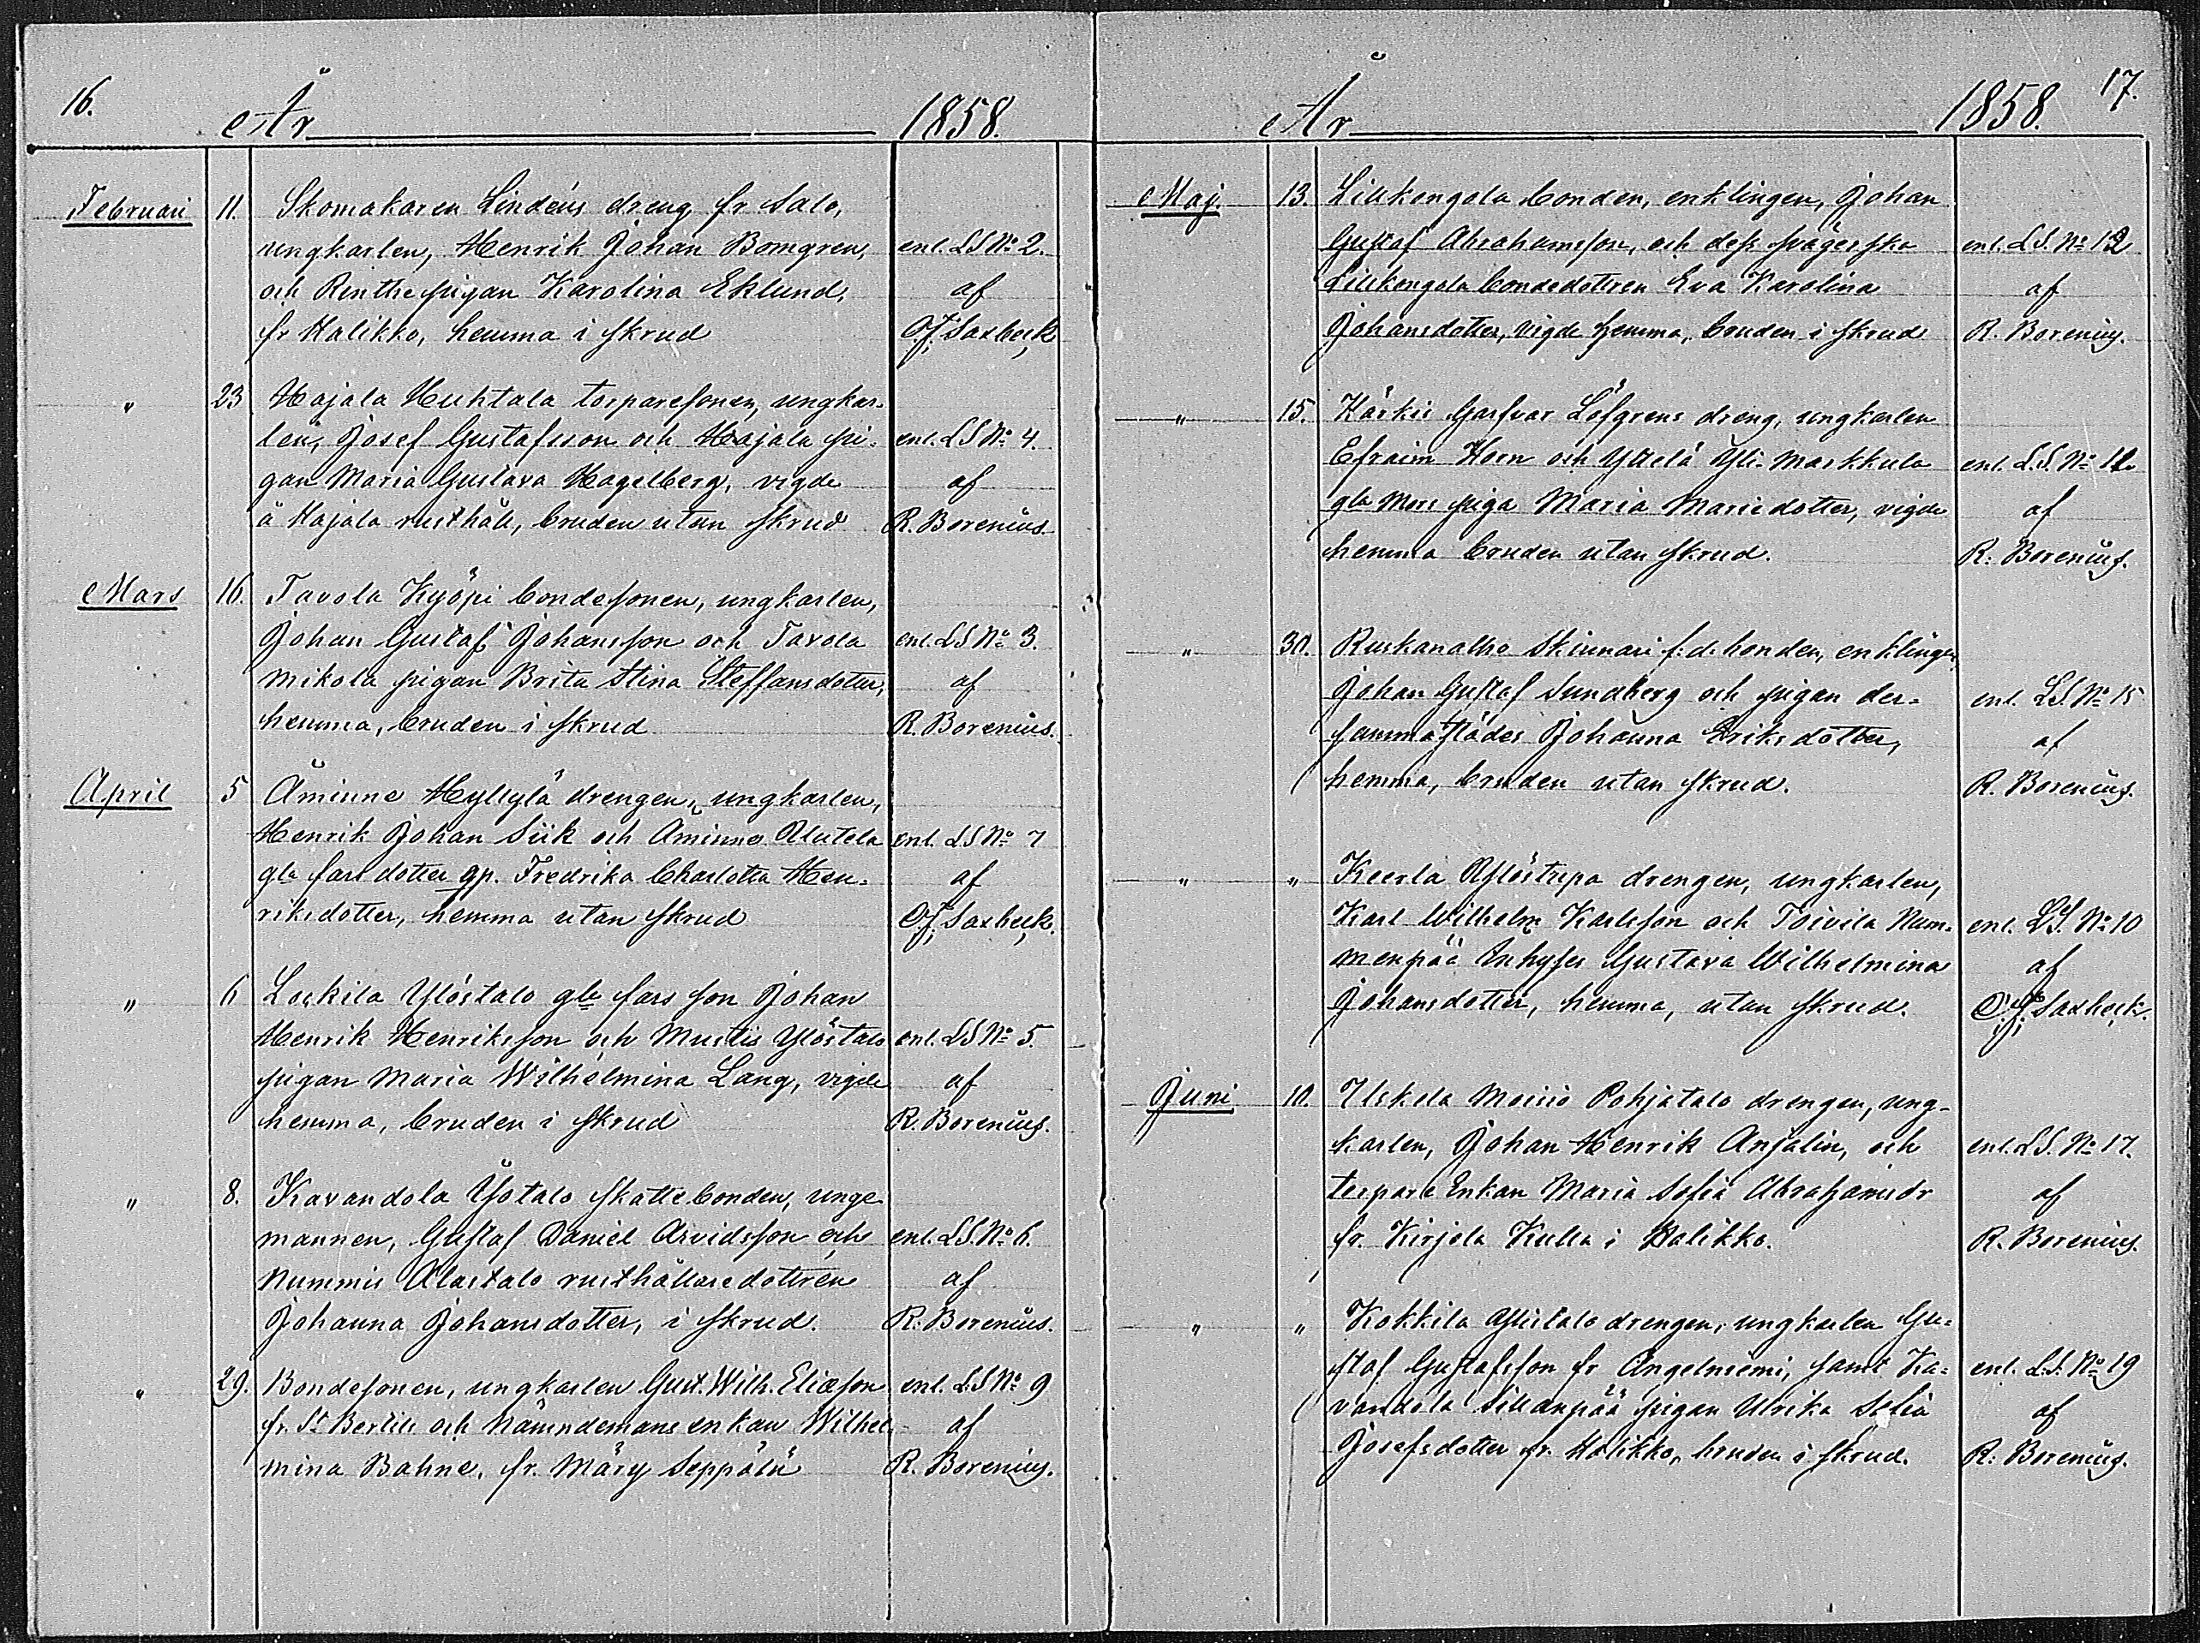 16.
År 1858.
Februari 11. Skomakaren Lindéns dreng fr Salo,
ungkarlen, Henrik Johan Bomgren, enl. LS No 2.
och Rinthe pigan Karolina Eklund, af
fr Halikko, hemma i skrud O.J. Saxbeck
" 23 Hajala Huhtala torparesonen, ungkar-
len, Josef Gustafsson och Hajala pi- enl. LS No 4.
gan Maria Gustava Hagelberg, vigde af
å Hajala rusthåll, bruden utan skrud R. Borenius.
Mars 16. Tavola Kyöpi bondesonen, ungkarlen,
Johan Gustaf Johansson och Tavola enl. LS No 3.
Mikola pigan Brita Stina Steffansdotter, af
hemma, bruden i skrud R. Borenius.
April 5 Åminne Myllylä drengen, ungkarlen,
Henrik Johan Siik och Åminne Rutela enl. LS No 7
gla fars dotter gp. Fredrika Charlotta Hen- af
riksdotter, hemma utan skrud O.J. Saxbeck.
" 6 Lockila Ylöstalo gla fars son Johan
Henrik Henriksson och Mustis Ylöstalo enl. LS No 5.
pigan Maria Wilhelmina Lang, vigde af
hemma, bruden i skrud R. Borenius.
" 8. Kavandola Yötalo skattebonden, unge
mannen, Gustaf Daniel Arvidsson och enl. LS. No 6.
Nummis Alastalo rusthållaredottren af
Johanna Johansdotter, i skrud. R. Borenius.
" 29. Bondesonen, ungkarlen Gust. Wilh. Eliæson enl. LS No 9
fr. St Bertils och Nämndemans enkan Wilhel- af
mina Bahne, fr. Märy Seppälä R. Borenius.
17.
År 1858.
Maj. 13. Liukongola bonden, enklingen, Johan
Gustaf Abrahamsson, och dess svägerska enl. LS. No 12
Liukongola bondedottren Eva Karolina af
Johansdotter, vigde hemma, bruden i skrud R. Borenius.
" 15. Kärkis Garfvar Löfgrens dreng, ungkarlen
Efraim Horn och Yttelä Yli-Markkula enl. L.S. No 11
gla mors piga Maria Mariedotter, vigde af
hemma bruden utan skrud. R. Borenius.
" 30. Ruskanalho Skinnari f.d. bonden, enklingen
Johan Gustaf Sundberg och pigan der- enl. LS. No 15
sammastädes Johanna Eriksdotter, af
hemma, bruden utan skrud. R. Borenius.
" " Keerla Ylöstupa drengen, ungkarlen,
Karl Wilhelm Karlsson och Toivila Num- enl. LS. No 10
menpää Inhyses Gustava Wilhelmina af
Johansdotter, hemma, utan skrud. O.J. Saxbeck.
Juni 10. Uskela Moisio Pohjatalo drengen, ung-
karlen, Johan Henrik Anjalin, och enl. LS. No 17.
torpare Enkan Maria Sofia Abrahamsdr af
fr. Kirjola Kulla i Halikko. R. Borenius.
" " Kokkila Ylistalo drengen, ungkarlen Gu-
staf Gustafsson fr Angelniemi, samt Ka- enl. LS. No 19
vandola Sillanpää pigan Ulrika Sofia af
Josefsdotter fr. Halikko, bruden i skrud. R. Borenius.